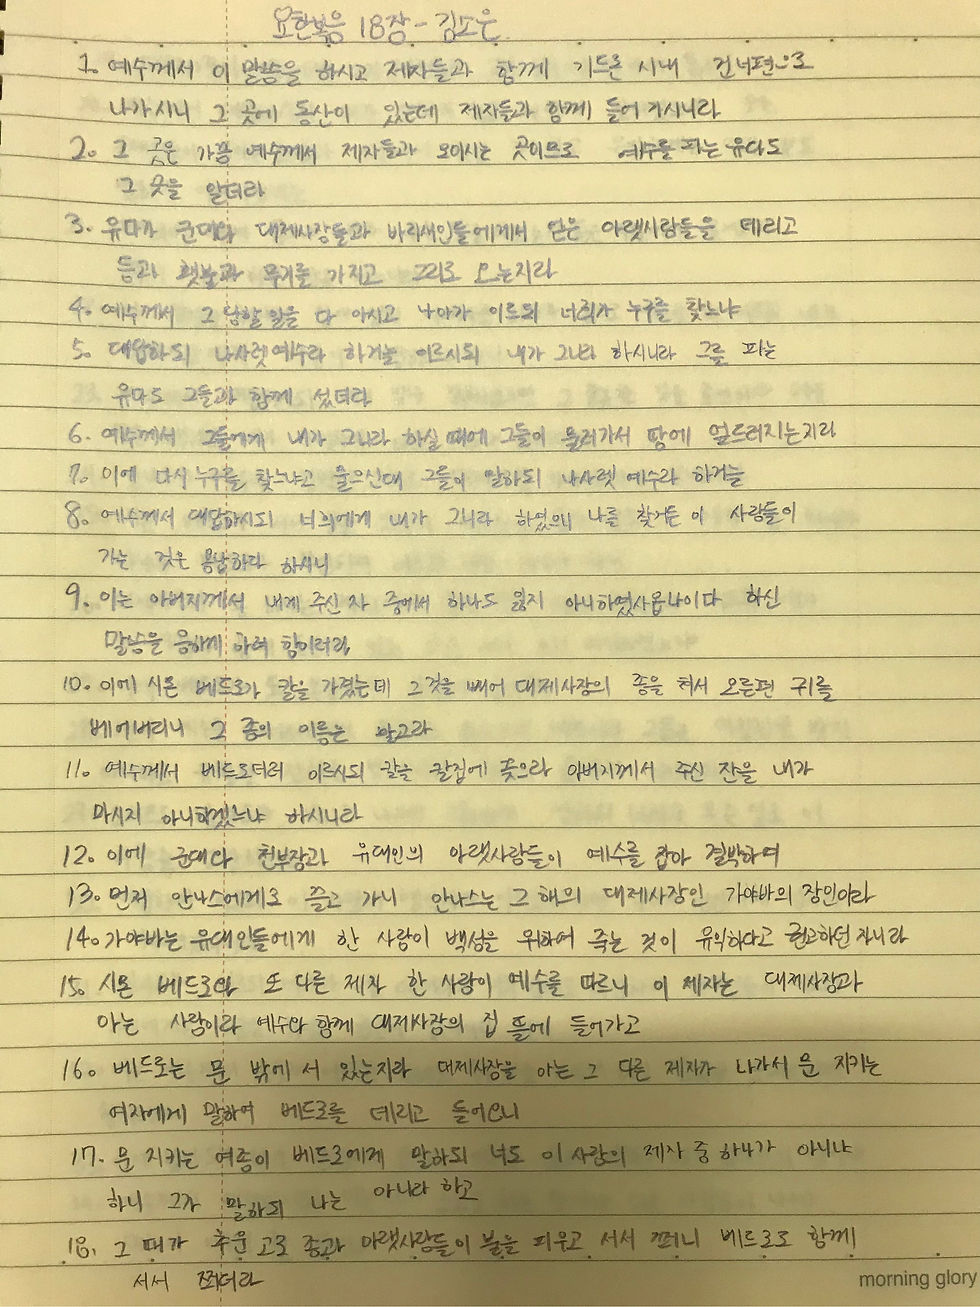 요한복음 18장 - 김소은
1. 예수께서 이 말씀을 하시고 제자들과 함께 기드론 시내 건너편으로
나가시니 그 곳에 동산이 있는데 제자들과 함께 들어 가시니라
2. 그 곳은 가끔 예수께서 제자들과 모이시는 곳이므로 예수를 파는 유다도
그 곳을 알더라
3. 유다가 군대와 대제사장들과 바리새인들에게서 얻은 아랫사람들을 데리고
등과 횃불과 무기를 가지고 그리로 오는지라
4. 예수께서 그 당할 일을 다 아시고 나아가 이르되 너희가 누구를 찾느냐
5. 대답하되 나사렛 예수라 하거늘 이르시되 내가 그니라 하시니라 그를 파는
유다도 그들과 함께 섰더라
6. 예수께서 그들에게 내가 그니라 하실 때에 그들이 물러가서 땅에 엎드러지는지라
7. 이에 다시 누구를 찾느냐고 물으신대 그들이 말하되 나사렛 예수라 하거늘
8. 예수께서 대답하시되 너희에게 내가 그니라 하였으니 나를 찾거든 이 사람들이
가는 것은 용납하라 하시니
9. 이는 아버지께서 내게 주신 자 중에서 하나도 잃지 아니하였사옵나이다 하신
말씀을 응하게 하려 함이러라
10. 이에 시몬 베드로가 칼을 가졌는데 그것을 빼어 대제사장의 종을 쳐서 오른편 귀를
베어버리니 그 종의 이름은 말고라
11. 예수께서 베드로더러 이르시되 칼을 칼집에 꽂으라 아버지께서 주신 잔을 내가
마시지 아니하겠느냐 하시니라
12. 이에 군대와 천부장과 유대인의 아랫사람들이 예수를 잡아 결박하여
13. 먼저 안나스에게로 끌고 가니 안나스는 그 해의 대제사장인 가야바의 장인이라
14. 가야바는 유대인들에게 한 사람이 백성을 위하여 죽는 것이 유익하다고 권고하던 자니라
15. 시몬 베드로와 또 다른 제자 한 사람이 예수를 따르니 이 제자는 대제사장과
아는 사람이라 예수와 함께 대제사장의 집 뜰에 들어가고
16. 베드로는 문 밖에 서 있는지라 대제사장을 아는 그 다른 제자가 나가서 문 지키는
여자에게 말하여 베드로를 데리고 들어오니
17. 문 지키는 여종이 베드로에게 말하되 너도 이 사람의 제자 중 하나가 아니냐
하니 그가 말하되 나는 아니라 하고
18. 그 때가 추운 고로 종과 아랫사람들이 불을 피우고 서서 쬐니 베드로도 함께
서서 쬐더라
morning glory